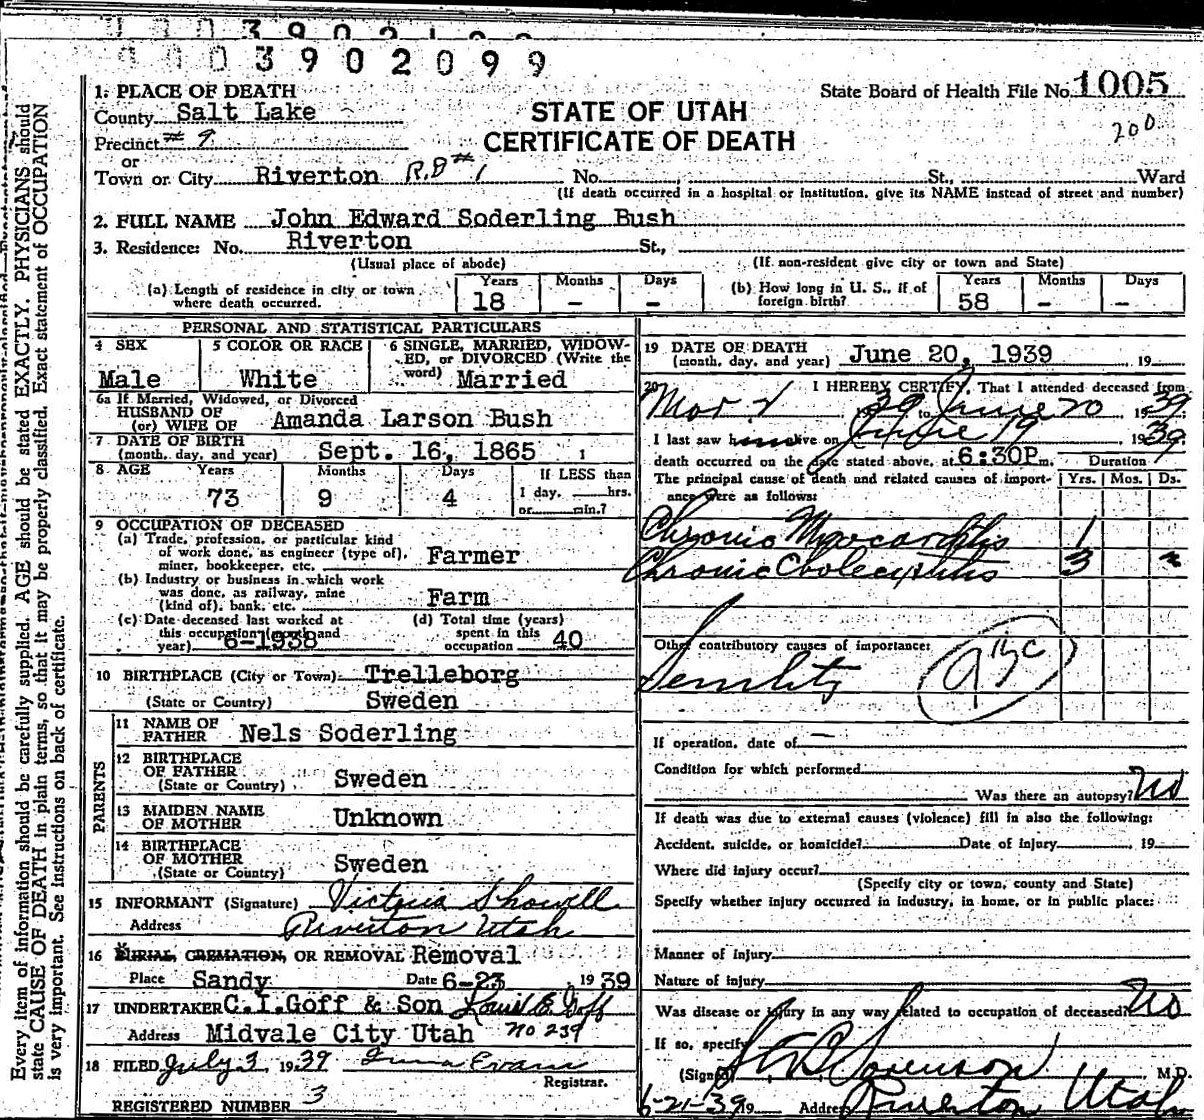 0003902099
1. PLACE OF DEATH
County Salt Lake
Precinct # 9
or
Town or City Riverton R.D #1
STATE OF UTAH
CERTIFICATE OF DEATH
State Board of Health File No. 1005
200
No. St., Ward
(If death occurred in a hospital or institution, give its NAME instead of street and number)
2. FULL NAME John Edward Soderling Bush
3. Residence: No. Riverton St.,
(Usual place of abode) (If non-resident give city or town and State)
(a) Length of residence in city or town where death occurred. Years 18 Months - Days -
(b) How long in U. S., if of foreign birth? Years 58 Months - Days -
PERSONAL AND STATISTICAL PARTICULARS
4 SEX Male
5 COLOR OR RACE White
6 SINGLE, MARRIED, WIDOWED, or DIVORCED (Write the word) Married
6a If Married, Widowed, or Divorced
HUSBAND OF
(or) WIFE OF Amanda Larson Bush
7 DATE OF BIRTH
(month, day, and year) Sept. 16, 1865
8 AGE Years 73 Months 9 Days 4 If LESS than 1 day, hrs. or min.?
9 OCCUPATION OF DECEASED
(a) Trade, profession, or particular kind
of work done, as engineer (type of),
miner, bookkeeper, etc. Farmer
(b) Industry or business in which work
was done, as railway, mine
(kind of), bank, etc. Farm
(c) Date deceased last worked at
this occupation (month and
year) 6-1938
(d) Total time (years)
spent in this
occupation 40
10 BIRTHPLACE (City or Town) Trelleborg
(State or Country) Sweden
PARENTS
11 NAME OF
FATHER Nels Soderling
12 BIRTHPLACE
OF FATHER
(State or Country) Sweden
13 MAIDEN NAME
OF MOTHER Unknown
14 BIRTHPLACE
OF MOTHER
(State or Country) Sweden
15 INFORMANT (Signature) Victoria Showell
Address Riverton Utah
16 BURIAL, CREMATION, OR REMOVAL Removal
Place Sandy Date 6-23 1939
17 UNDERTAKER C.I.Goff & Son Louis E Goff
Address Midvale City Utah no 239
18 FILED July 3 1939 Evans
Registrar.
REGISTERED NUMBER 3
19 DATE OF DEATH
(month, day, and year) June 20, 1939 19
20 I HEREBY CERTIFY, That I attended deceased from
Mar 2 39 to June 20 1939
I last saw him alive on June 19 1939
death occurred on the date stated above, at 6:30P m. Duration
The principal cause of death and related causes of importance were as follows: Yrs. Mos. Ds.
Chronic Myocarditis 1
Chronic Cholecystitis 3
Other contributory causes of importance:
Senility 93c
If operation, date of —
Condition for which performed
Was there an autopsy? No
If death was due to external causes (violence) fill in also the following:
Accident, suicide, or homicide? Date of injury 19
Where did injury occur?
(Specify city or town, county and State)
Specify whether injury occurred in industry, in home, or in public place:
Manner of injury
Nature of injury
Was disease or injury in any way related to occupation of deceased? No
If so, specify
(Signed) Sorenson M.D.
6-21-39 19 Address Riverton Utah
Every item of information should be carefully supplied. AGE should be stated EXACTLY. PHYSICIANS should
state CAUSE OF DEATH in plain terms, so that it may be properly classified. Exact statement of OCCUPATION
is very important. See instructions on back of certificate.